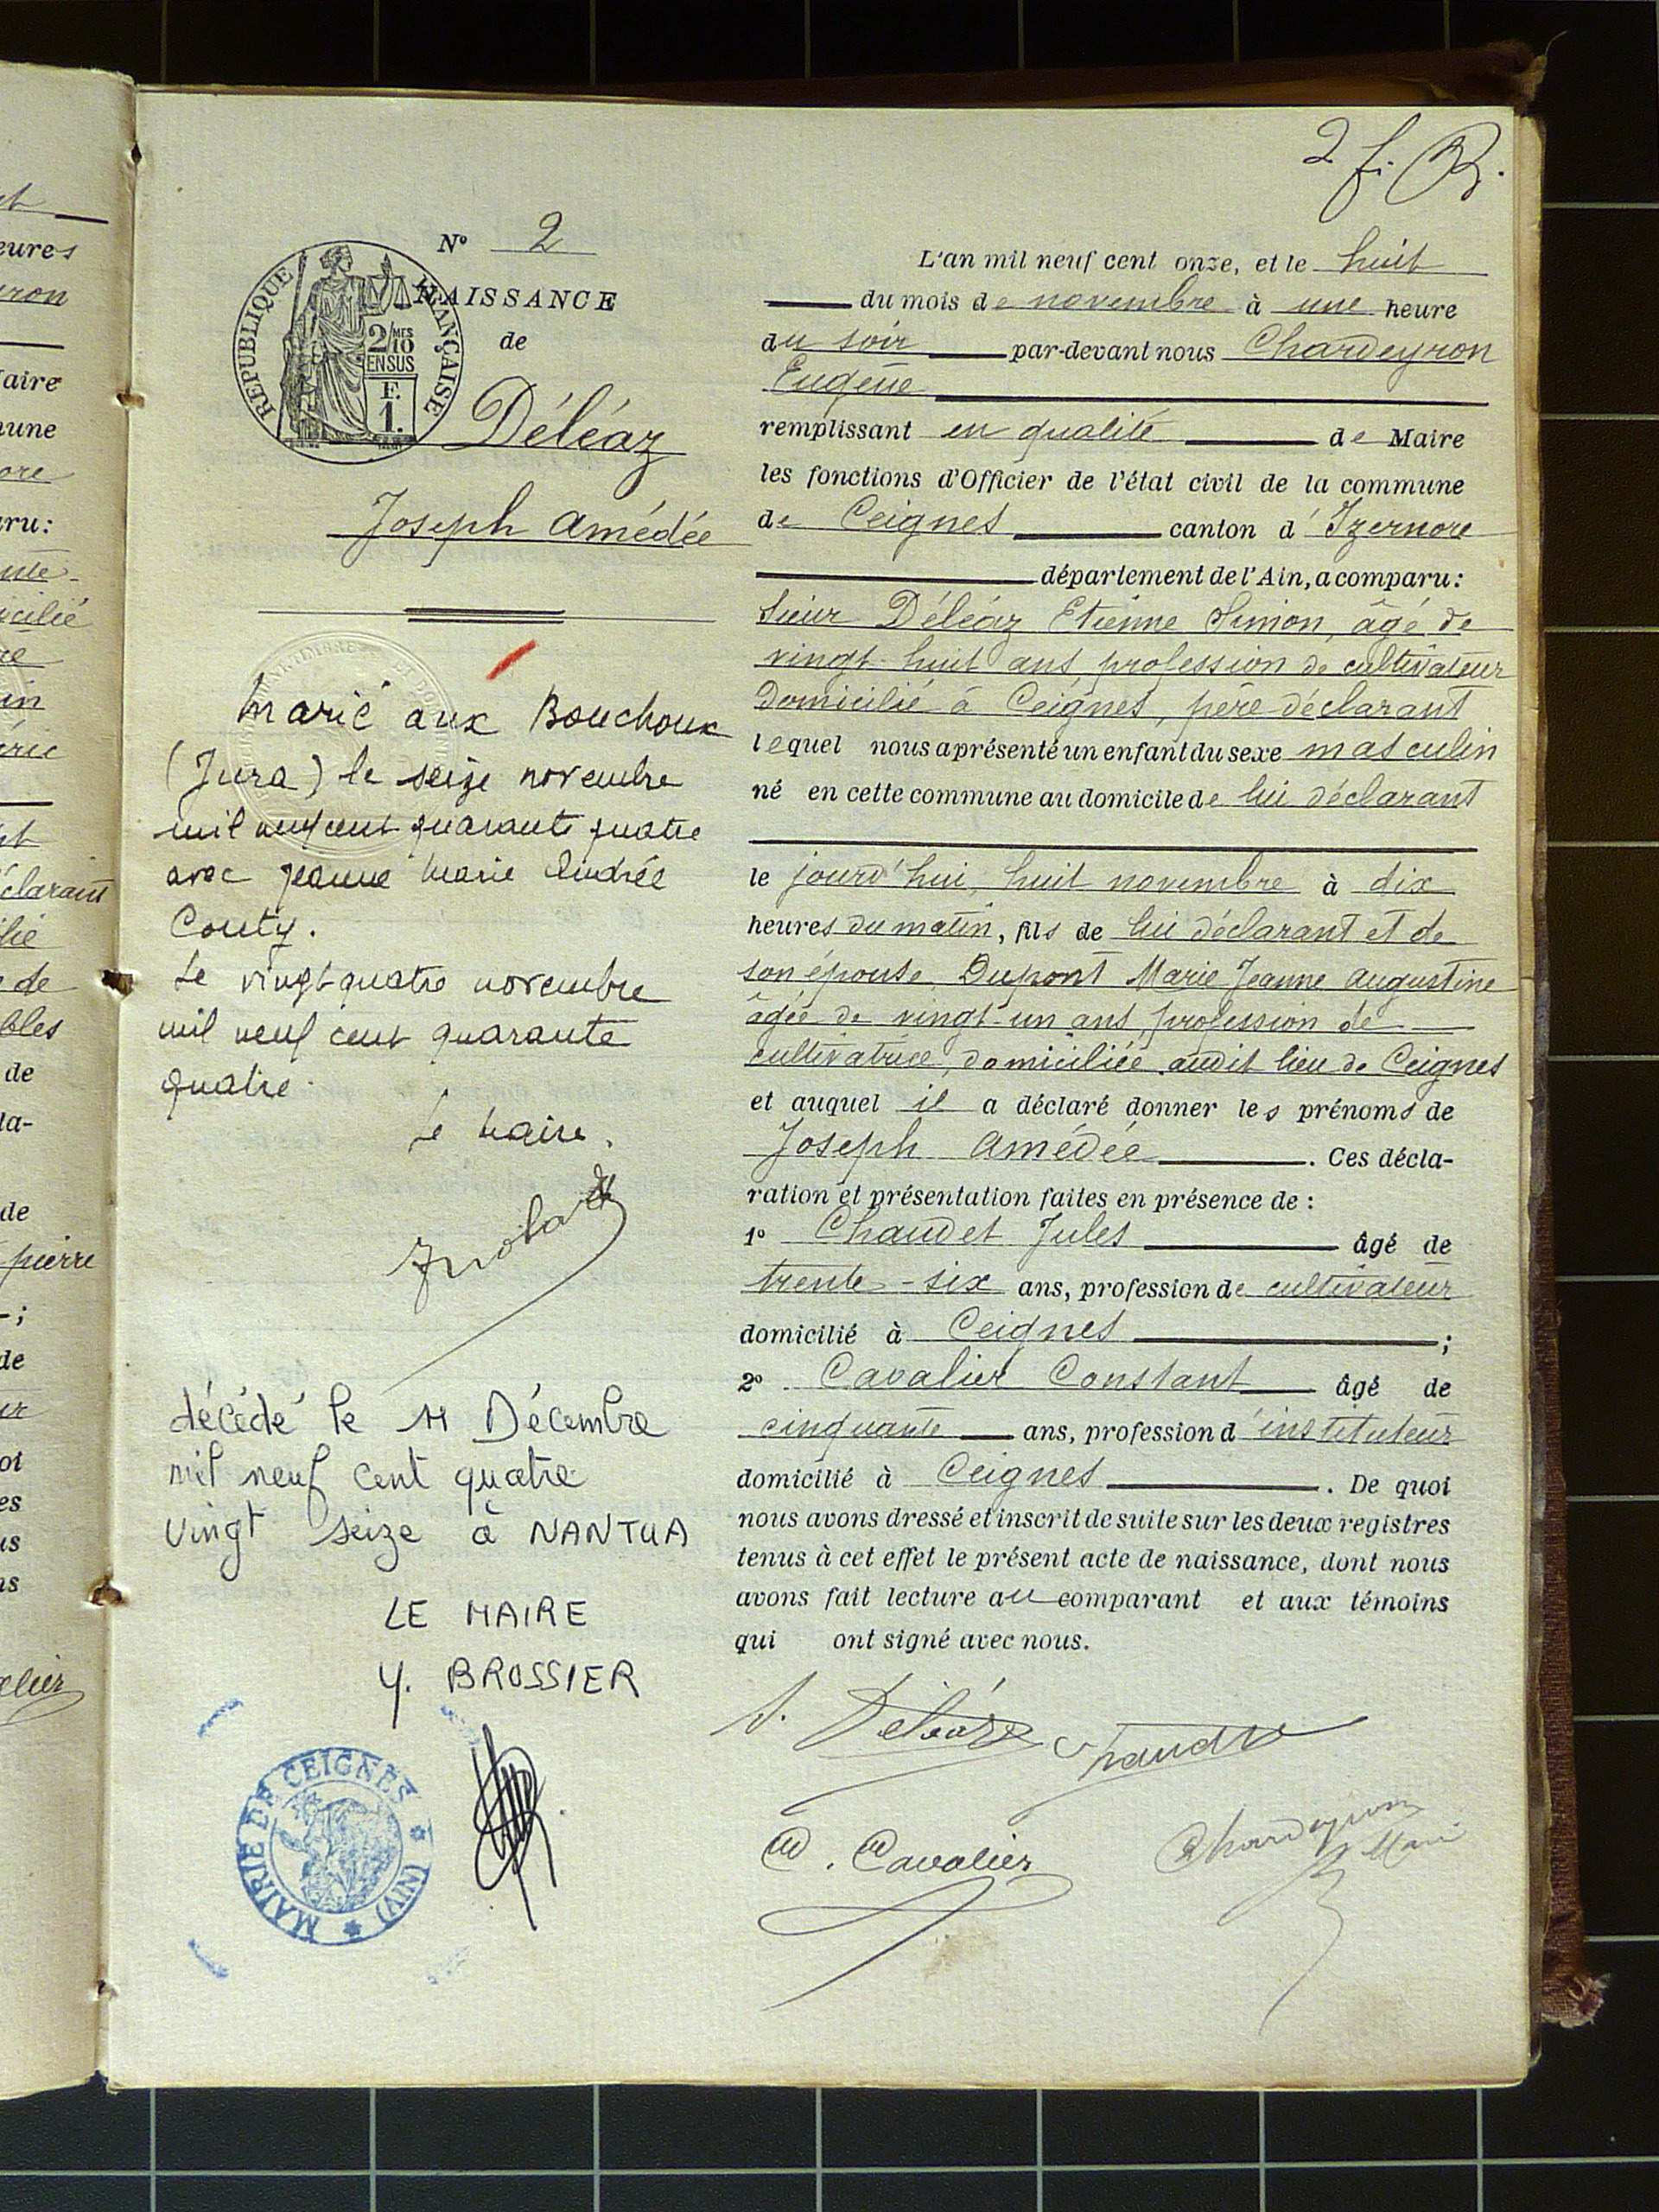 2 f. R.
N° 2
RÉPUBLIQUE FRANÇAISE
2/10 MES
EN SUS
F.
1.
NAISSANCE
de
Déléaz
Joseph Amédée
Marié aux Bouchoux
(Jura) le seize novembre
mil neuf cent quarante quatre
avec Jeanne Marie Andrée
Couty.
Le vingt quatre novembre
mil neuf cent quarante
quatre.
Le Maire.
décédé le 11 Décembre
mil neuf cent quatre
vingt seize à NANTUA
LE MAIRE
Y. BROSSIER
MAIRIE DE CEIGNES * (AIN) *
L'an mil neuf cent onze, et le huit
du mois de novembre à une heure
du soir par-devant nous Chardeyron
Eugène
remplissant en qualité de Maire
les fonctions d'Officier de l'état civil de la commune
de Ceignes canton d'Izernore
département de l'Ain, a comparu:
Sieur Déléaz Etienne Simon, âgé de
vingt-huit ans, profession de cultivateur
domicilié à Ceignes, père déclarant
lequel nous a présenté un enfant du sexe masculin
né en cette commune au domicile de lui déclarant
le jourd'hui, huit novembre à dix
heures du matin, fils de lui déclarant et de
son épouse Dupont Marie Jeanne Augustine
âgée de vingt-un ans, profession de
cultivatrice, domiciliée audit lieu de Ceignes
et auquel il a déclaré donner les prénoms de
Joseph Amédée. Ces décla-
ration et présentation faites en présence de :
1° Chaudet Jules âgé de
trente-six ans, profession de cultivateur
domicilié à Ceignes ;
2° Cavalier Constant âgé de
cinquante ans, profession d'instituteur
domicilié à Ceignes. De quoi
nous avons dressé et inscrit de suite sur les deux registres
tenus à cet effet le présent acte de naissance, dont nous
avons fait lecture au comparant et aux témoins
qui ont signé avec nous.
S. Déléaz
C. Cavalier
Chardeyron